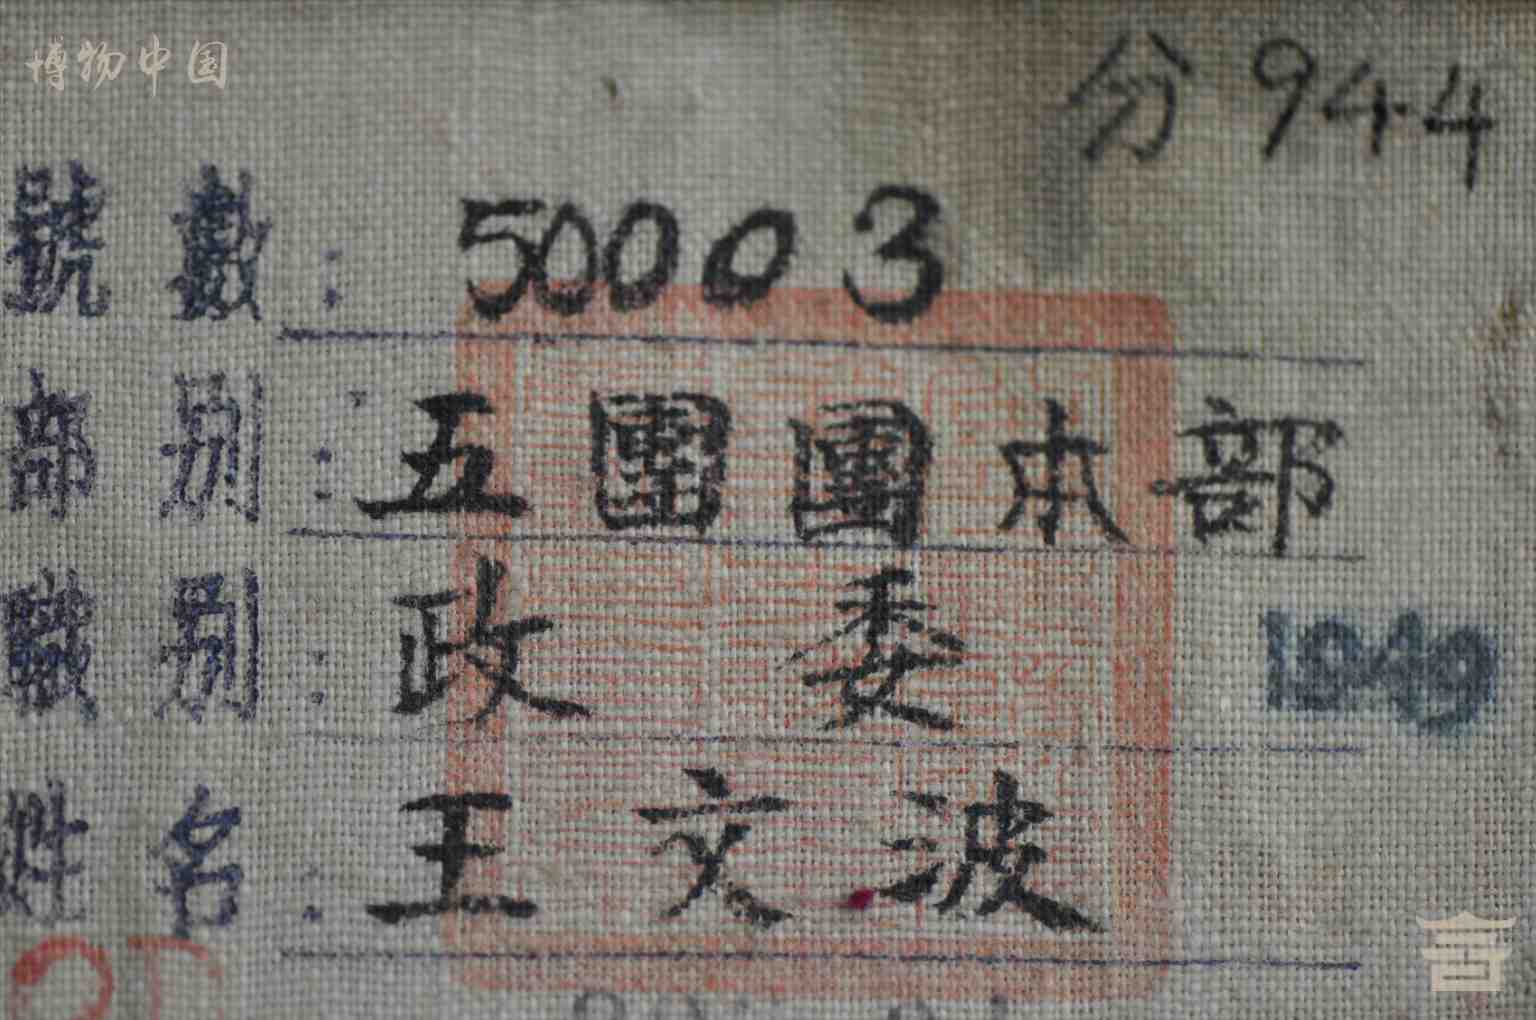 博物中国
分944
號數：50003
部別：五團團本部
職別：政委
1949
姓名：王文波